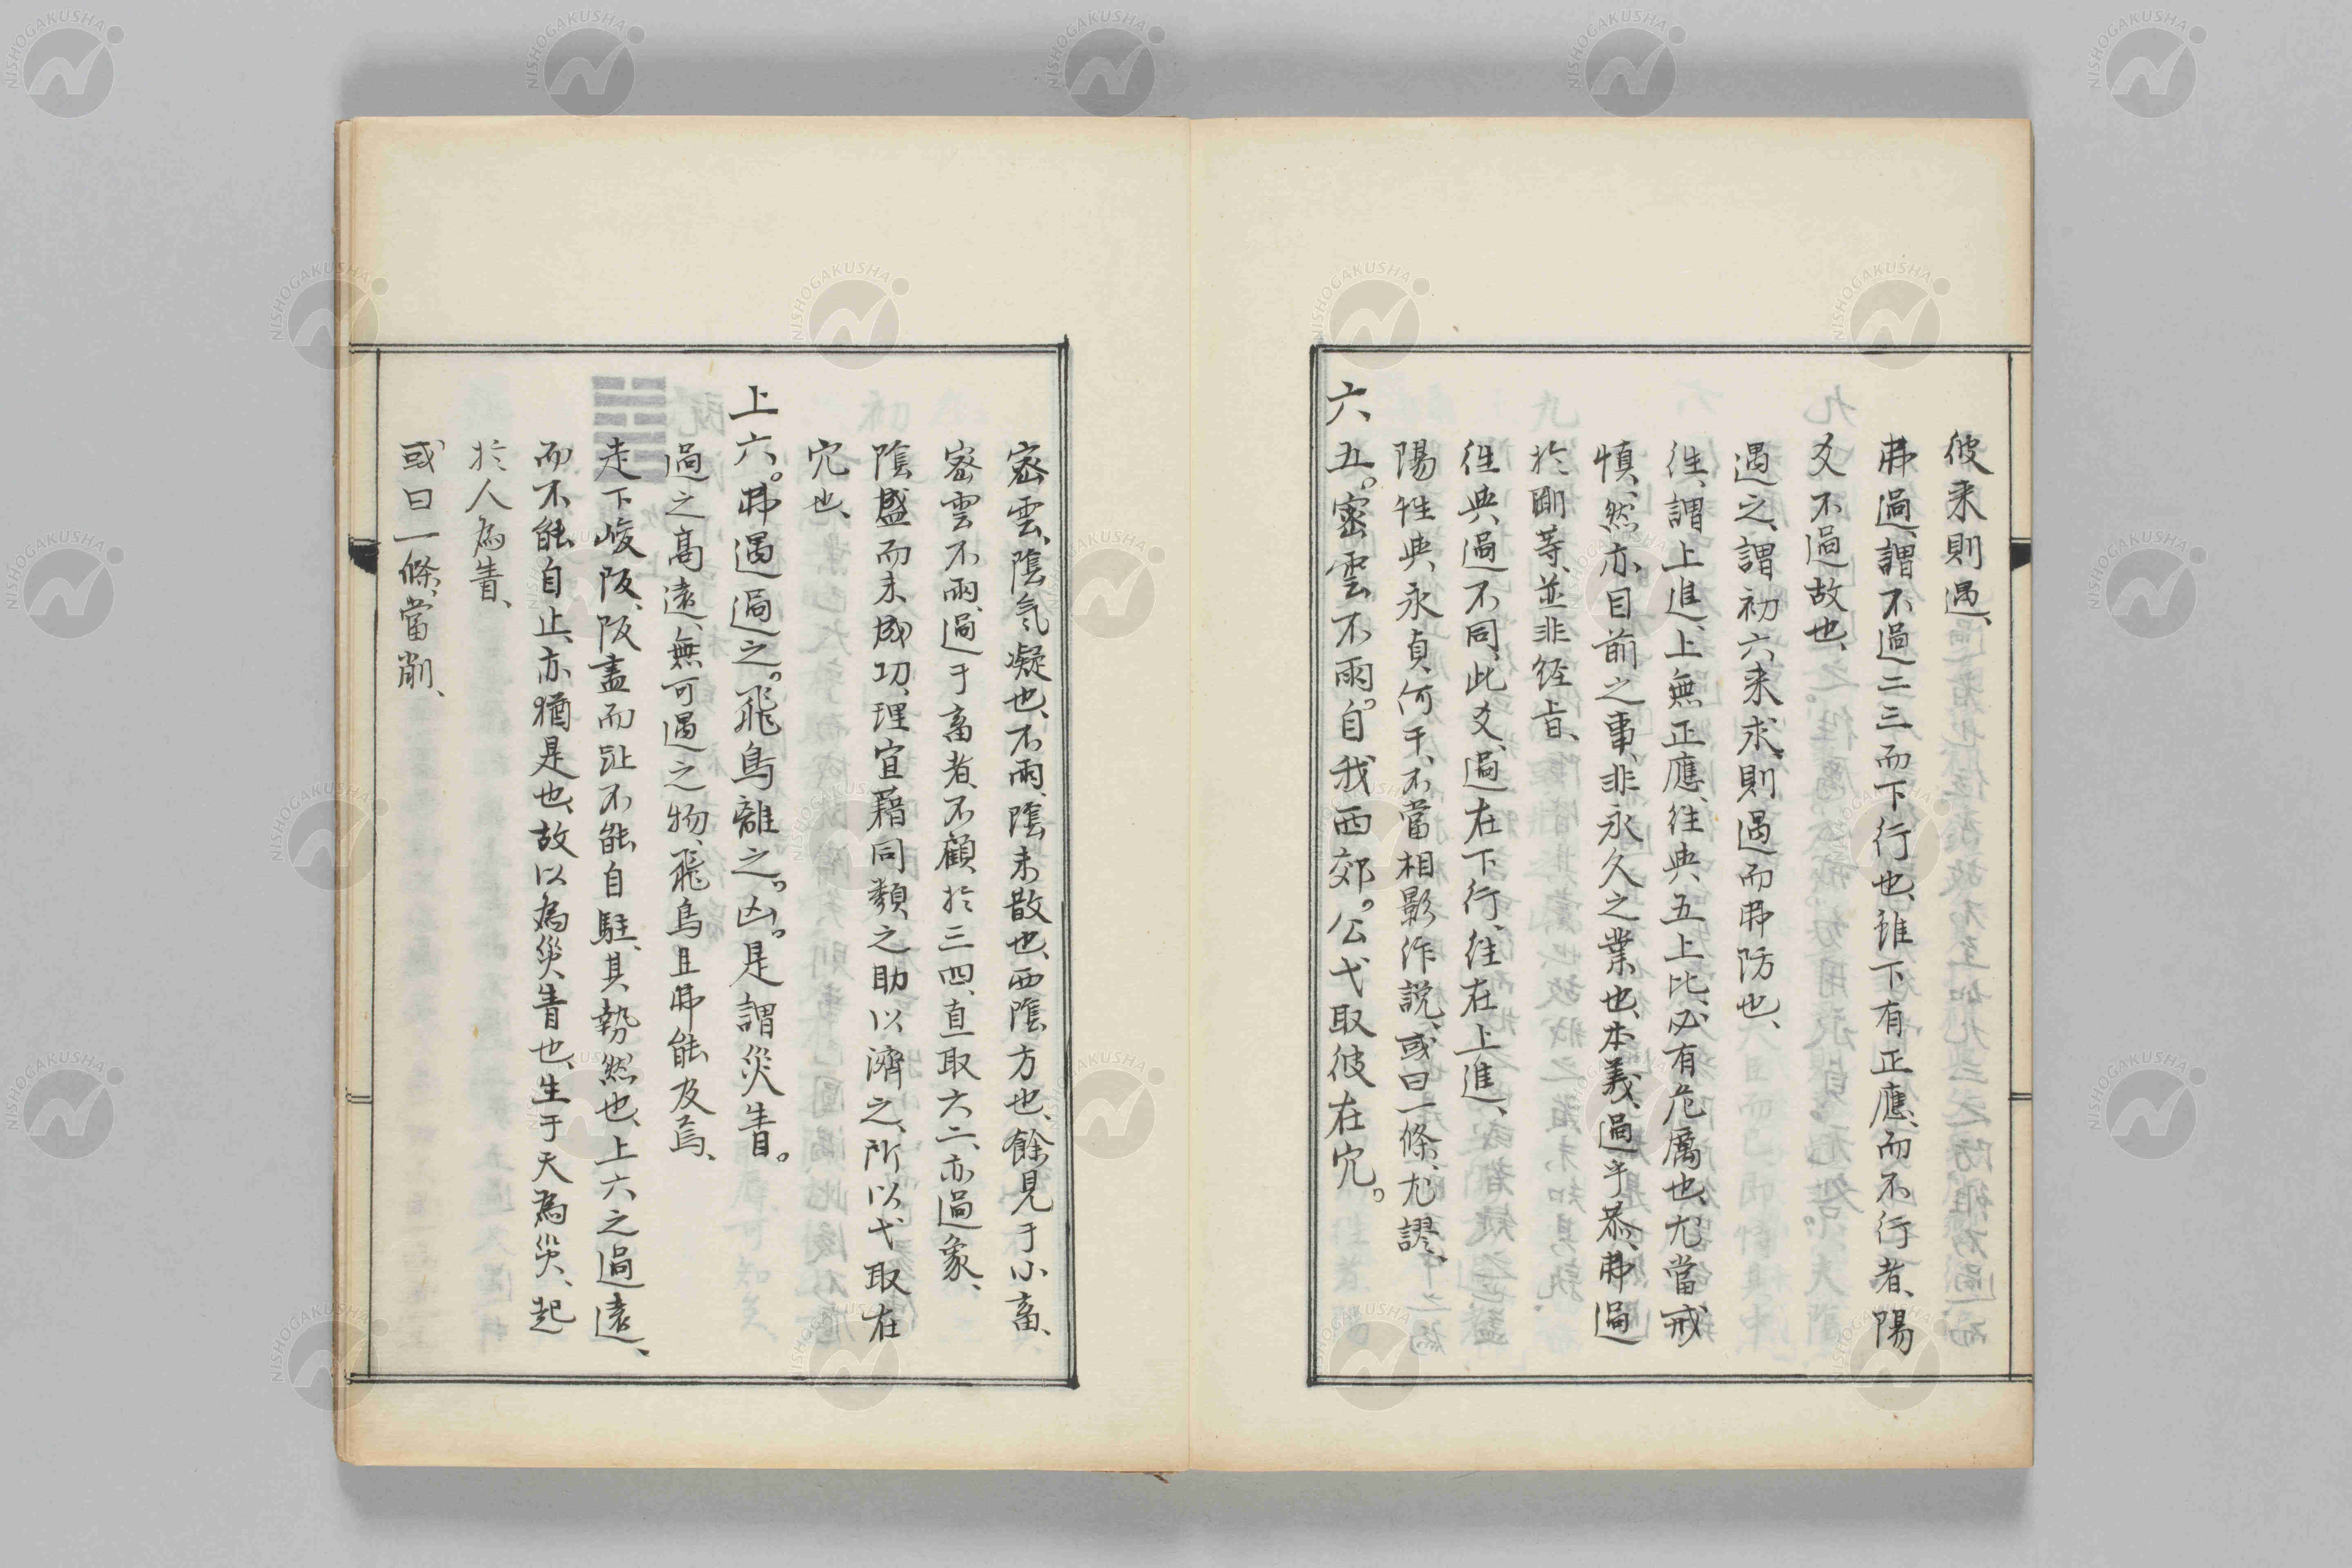 彼来則遇、
弗過、謂不過二三而下行也、雖下有正應、而不行者、陽
爻不過故也、
遇之、謂初六来求、則遇而弗防也、
往、謂上進、上無正應、往與五上比、必有危厲也、尤當戒
慎、然亦目前之事、非永久之業也、本義、過乎恭、弗過
於剛等、並非経旨、
往與過不同、此爻、過在下行、往在上進、
陽性與永貞、何干、不當相影作説、或曰一條、尤謬、
六五。密雲不雨。自我西郊。公弋取彼在穴。
密雲、陰気凝也、不雨、陰未散也、西陰方也、餘見于小畜、
密雲不雨、過于畜者、不顧於三四、直取六二、亦過象、
陰盛而未成功、理宜藉同類之助以濟之、所以弋取在
穴也、
上六。弗遇過之。飛鳥離之。凶。是謂災眚。
過之高遠、無可遇之物、飛鳥且弗能及焉、
走下峻阪、阪盡而趾不能自駐、其勢然也、上六之過遠、
而不能自止、亦猶是也、故以為災眚也、生于天為災、起
於人為眚、
或曰一條、當削、
NISHOGAKUSHA